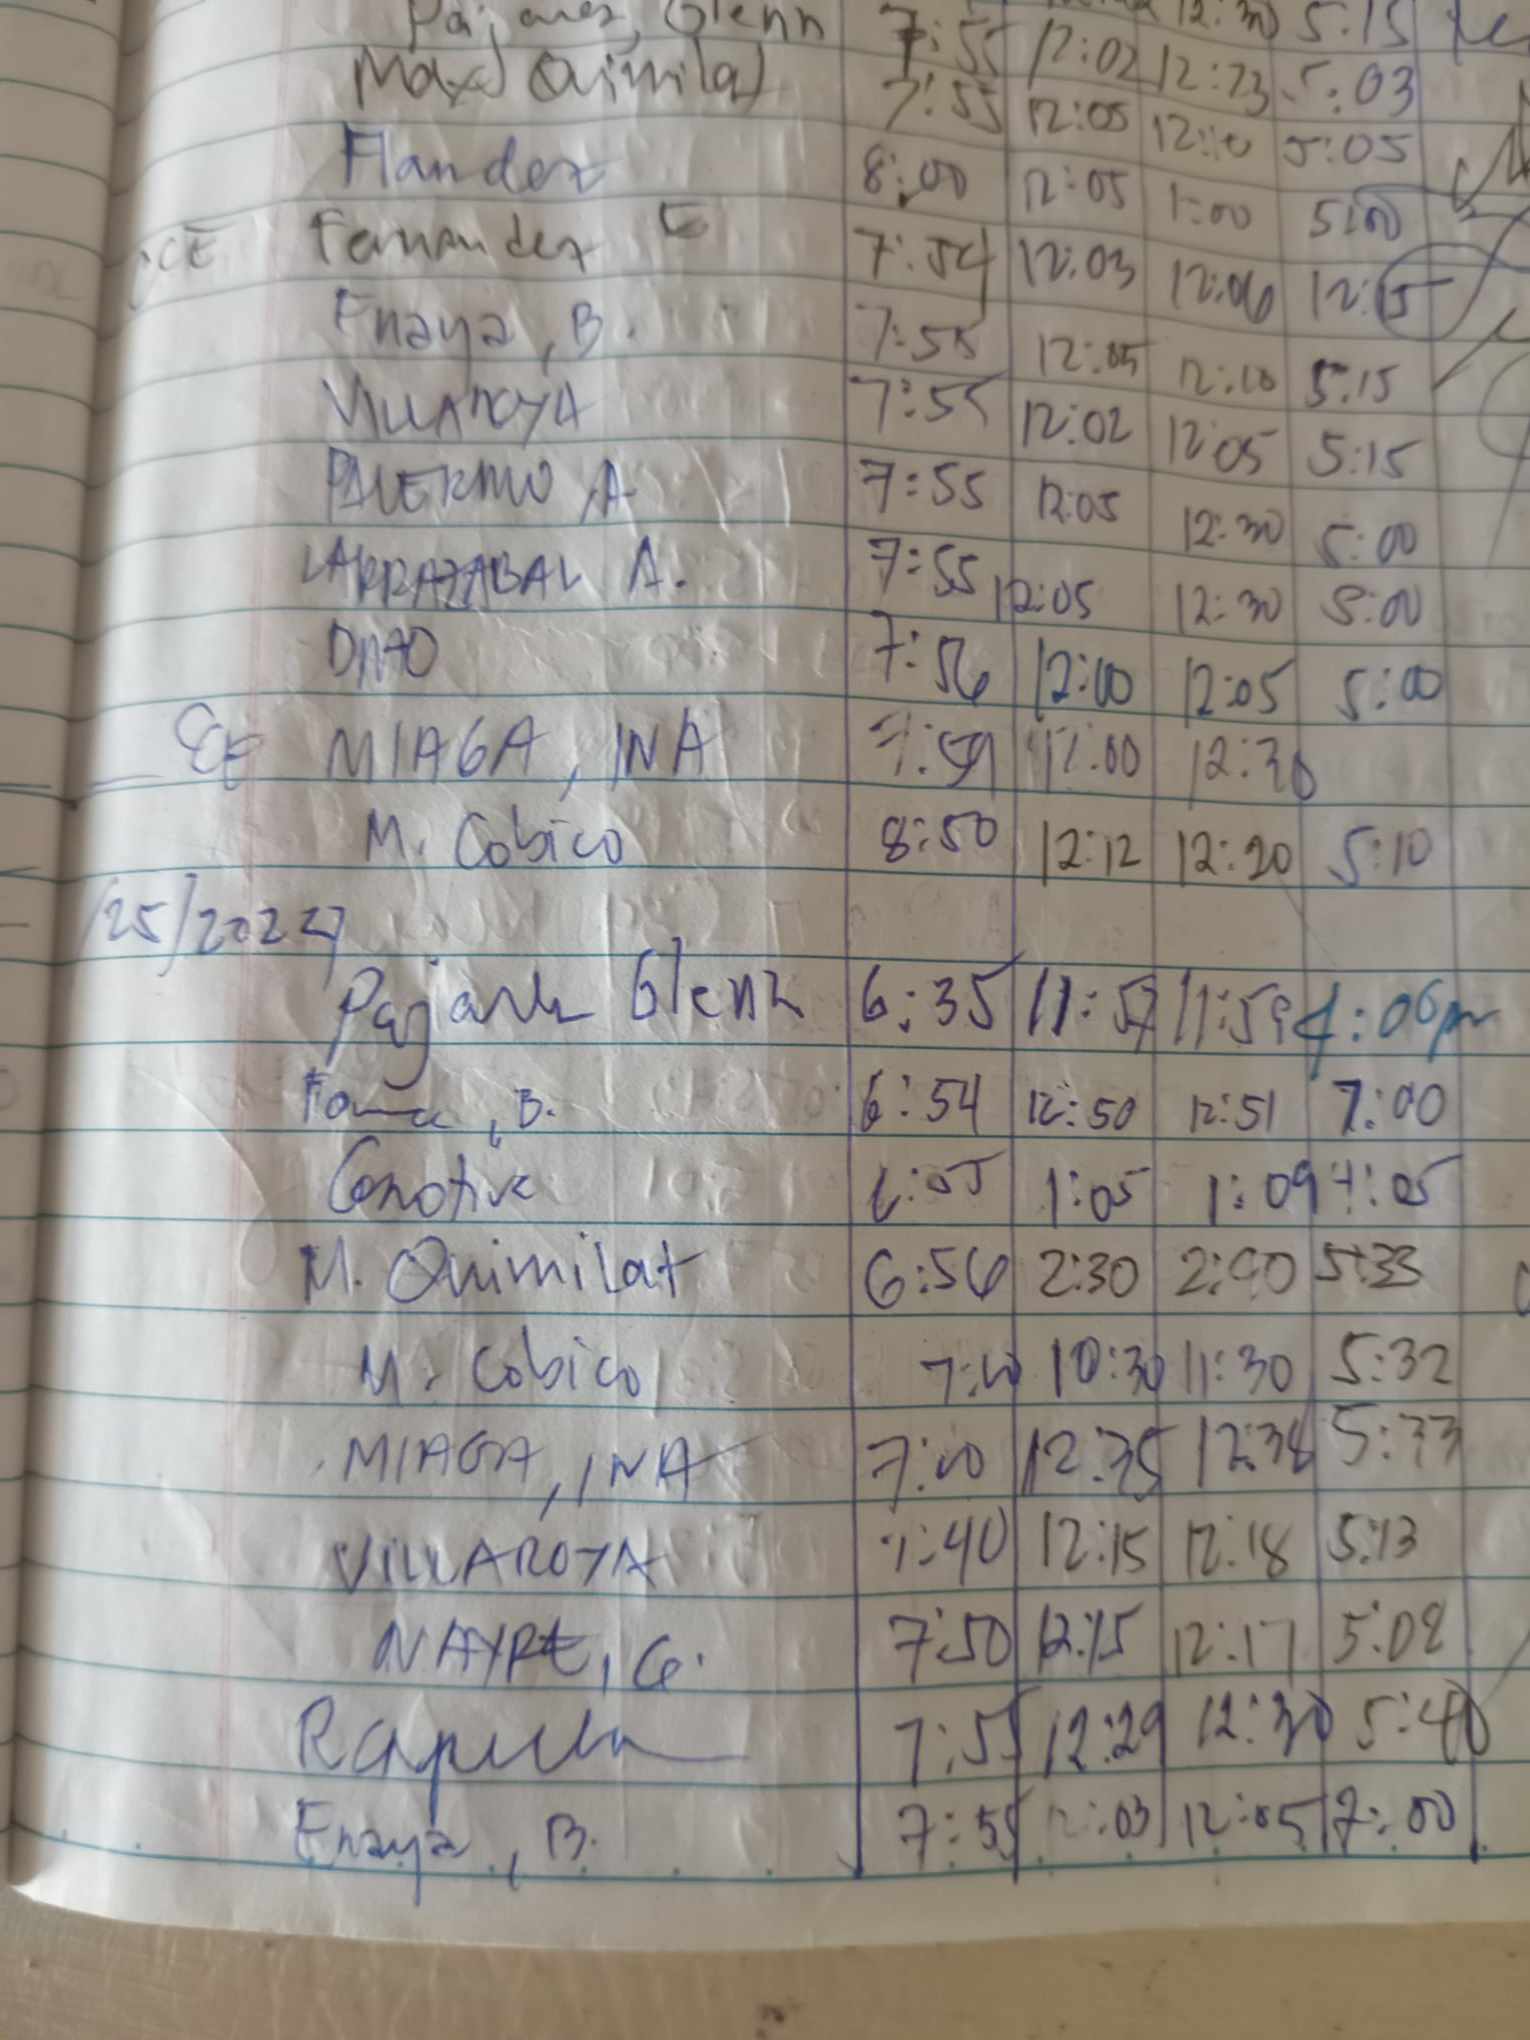 Pajares, Glenn 7:55 12:30 5:15
Max Quimilat 7:55 12:02 12:23 5:03
Flandez 7:55 12:05 12:10 5:05
Fernandez E 8:00 12:05 1:00 5:00
Enaya, B. 7:54 12:03 12:06 12:15
VILLAROYA 7:55 12:05 12:10 5:15
PALERMO, A 7:55 12:02 12:05 5:15
LARRAZABAL A. 7:55 12:05 12:30 5:00
7:55 12:05 12:30 5:00
7:56 12:00 12:05 5:00
MIAGA, INA 7:59 12:00 12:30
M. Cobico 8:50 12:12 12:20 5:10
/25/2024
Pajares Glenn 6:35 11:57 11:59 4:06pm
B. 6:54 12:50 12:51 7:00
6:55 1:05 1:09 4:05
M. Quimilat 6:56 2:30 2:40 5:33
M. Cobico 7:10 10:30 11:30 5:32
MIAGA, INA 7:00 12:35 12:38 5:33
VILLAROYA 7:40 12:15 12:18 5:13
NAYRE, G. 7:50 12:15 12:17 5:08
7:55 12:29 12:30 5:40
Enaya, B. 7:55 12:03 12:05 7:00